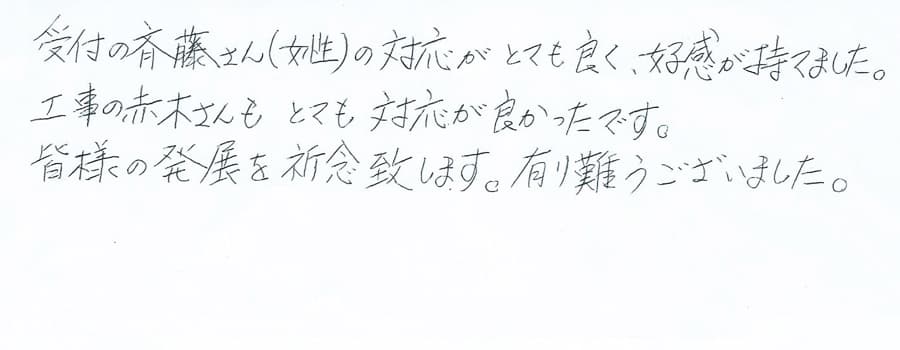 受付の斉藤さん(女性)の対応がとても良く、好感が持てました。
工事の赤木さんもとても対応が良かったです。
皆様の発展を祈念致します。有り難うございました。